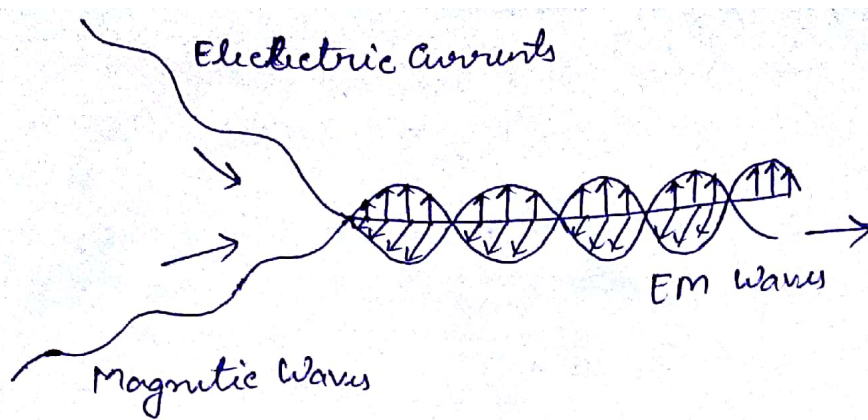 Electric Currents
EM Waves
Magnetic Waves